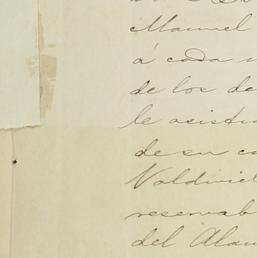 Manuel
á cada
de los de
le asistía
de su ca
Valdivie
reservab
del Alam